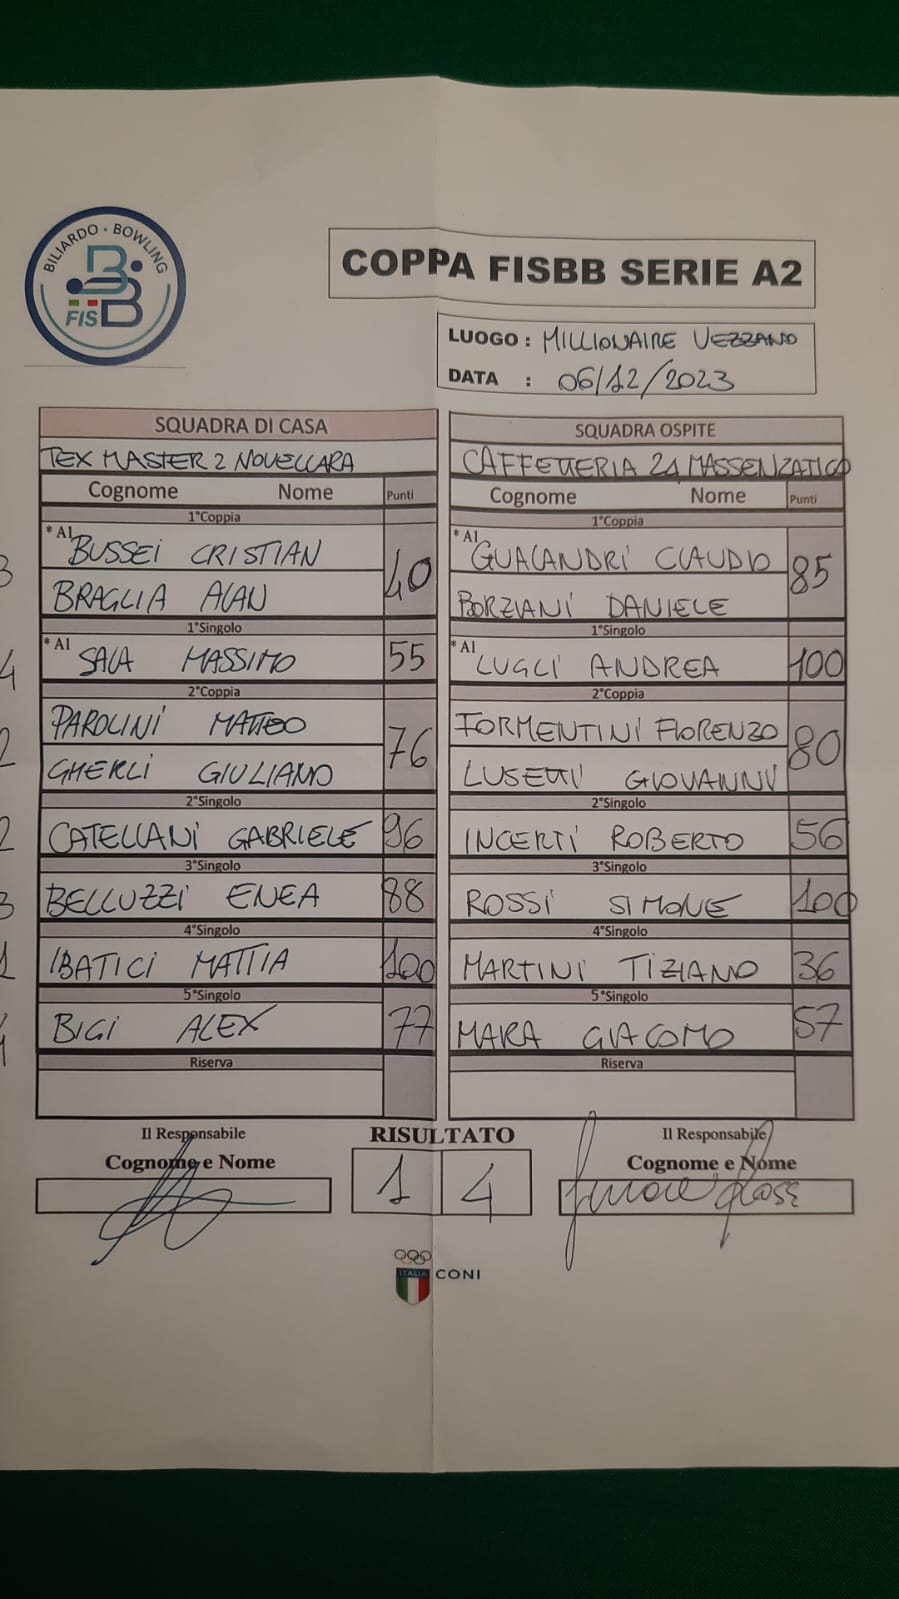 BILIARDO • BOWLING
FISBB
COPPA FISBB SERIE A2
LUOGO : MILLIONAIRE VEZZANO
DATA : 06/12/2023
SQUADRA DI CASA SQUADRA OSPITE
TEX MASTER 2 NOVELLARA CAFFETTERIA 21 MASSENZATICO
Cognome Nome Punti Cognome Nome Punti
1°Coppia 1°Coppia
* A1 BUSSEI CRISTIAN 40 * A1 GUALANDRI CLAUDIO 85
3
BRAGLIA ALAN BORZIANI DANIELE
1°Singolo 1°Singolo
4 * A1 SALA MASSIMO 55 * A1 LUGLI ANDREA 100
2°Coppia 2°Coppia
PAROLINI MATTEO 76 FORMENTINI FLORENZO 80
2
GHERLI GIULIANO LUSETTI GIOVANNI
2°Singolo 2°Singolo
2 CATELLANI GABRIELE 96 INCERTI ROBERTO 56
3°Singolo 3°Singolo
3 BELLUZZI ENEA 88 ROSSI SIMONE 100
4°Singolo 4°Singolo
1 IBATICI MATTIA 100 MARTINI TIZIANO 36
5°Singolo 5°Singolo
BIGI ALEX 77 MARA GIACOMO 57
Riserva Riserva
Il Responsabile RISULTATO Il Responsabile
Cognome e Nome Cognome e Nome
1 4 Simone Rossi
ITALIA CONI